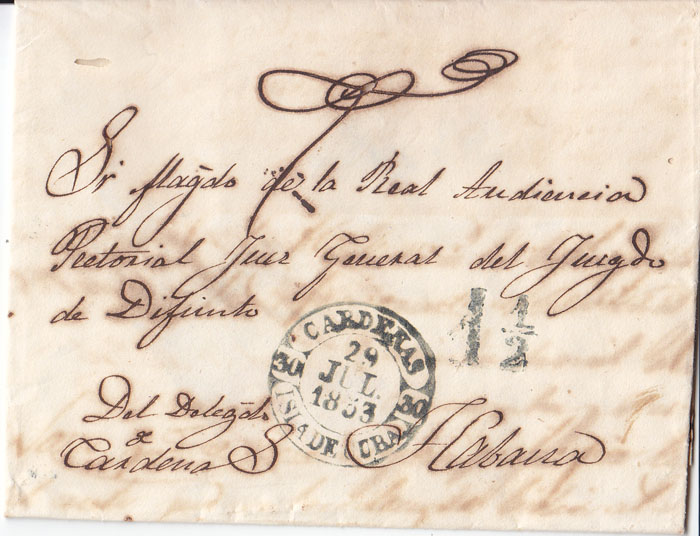 Sr Magdo de la Real Audiencia
Pretorial Juez General del Juzgdo
de Difunto
1 1/2
CARDENAS
29
JUL.
1853
30 30
ISLA DE CUBA
Del Delegdo
de
Cardenas
Habana